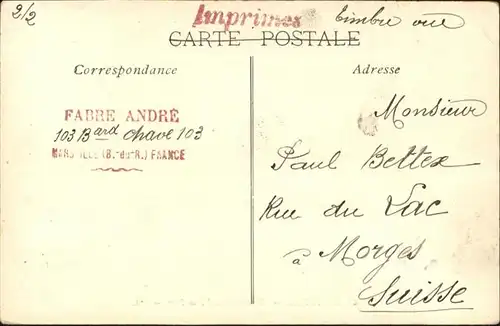 2/2
Imprimés
timbre vue
CARTE POSTALE
Correspondance
Adresse
FABRE ANDRÉ
103 Bard Chave 103
MARSEILLE (B.-du-R.) FRANCE
Monsieur
Paul Bettex
Rue du Lac
à Morges
Suisse